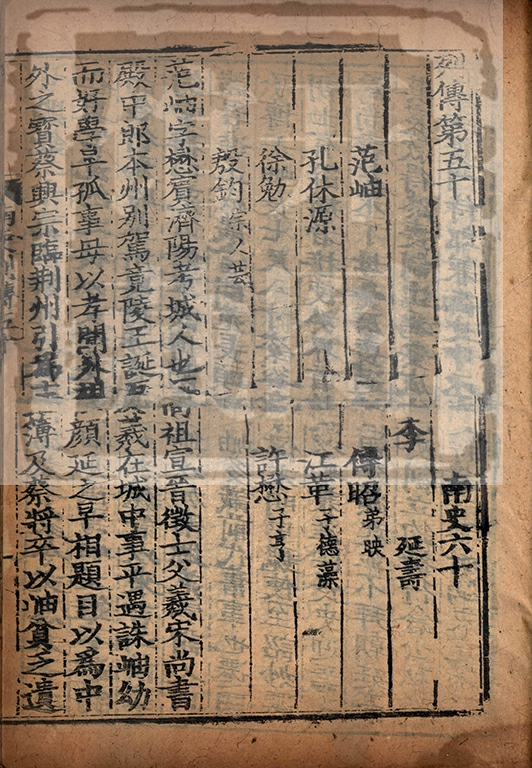 列傳第五十 南史六十
李 延壽
范岫 傅昭弟映
孔休源 江革子德藻
徐勉 許懋子亨
殷鈞宗人芸
范岫字懋賓濟陽考城人也高祖宣晉徵士父羲宋尚書
殿中郎本州別駕竟陵王誕反羲在城中事平遇誅岫幼
而好學早孤事母以孝聞外祖顔延之早相題目以爲中
外之寶蔡興宗臨荆州引爲主簿及蔡將卒以岫貧乏遺